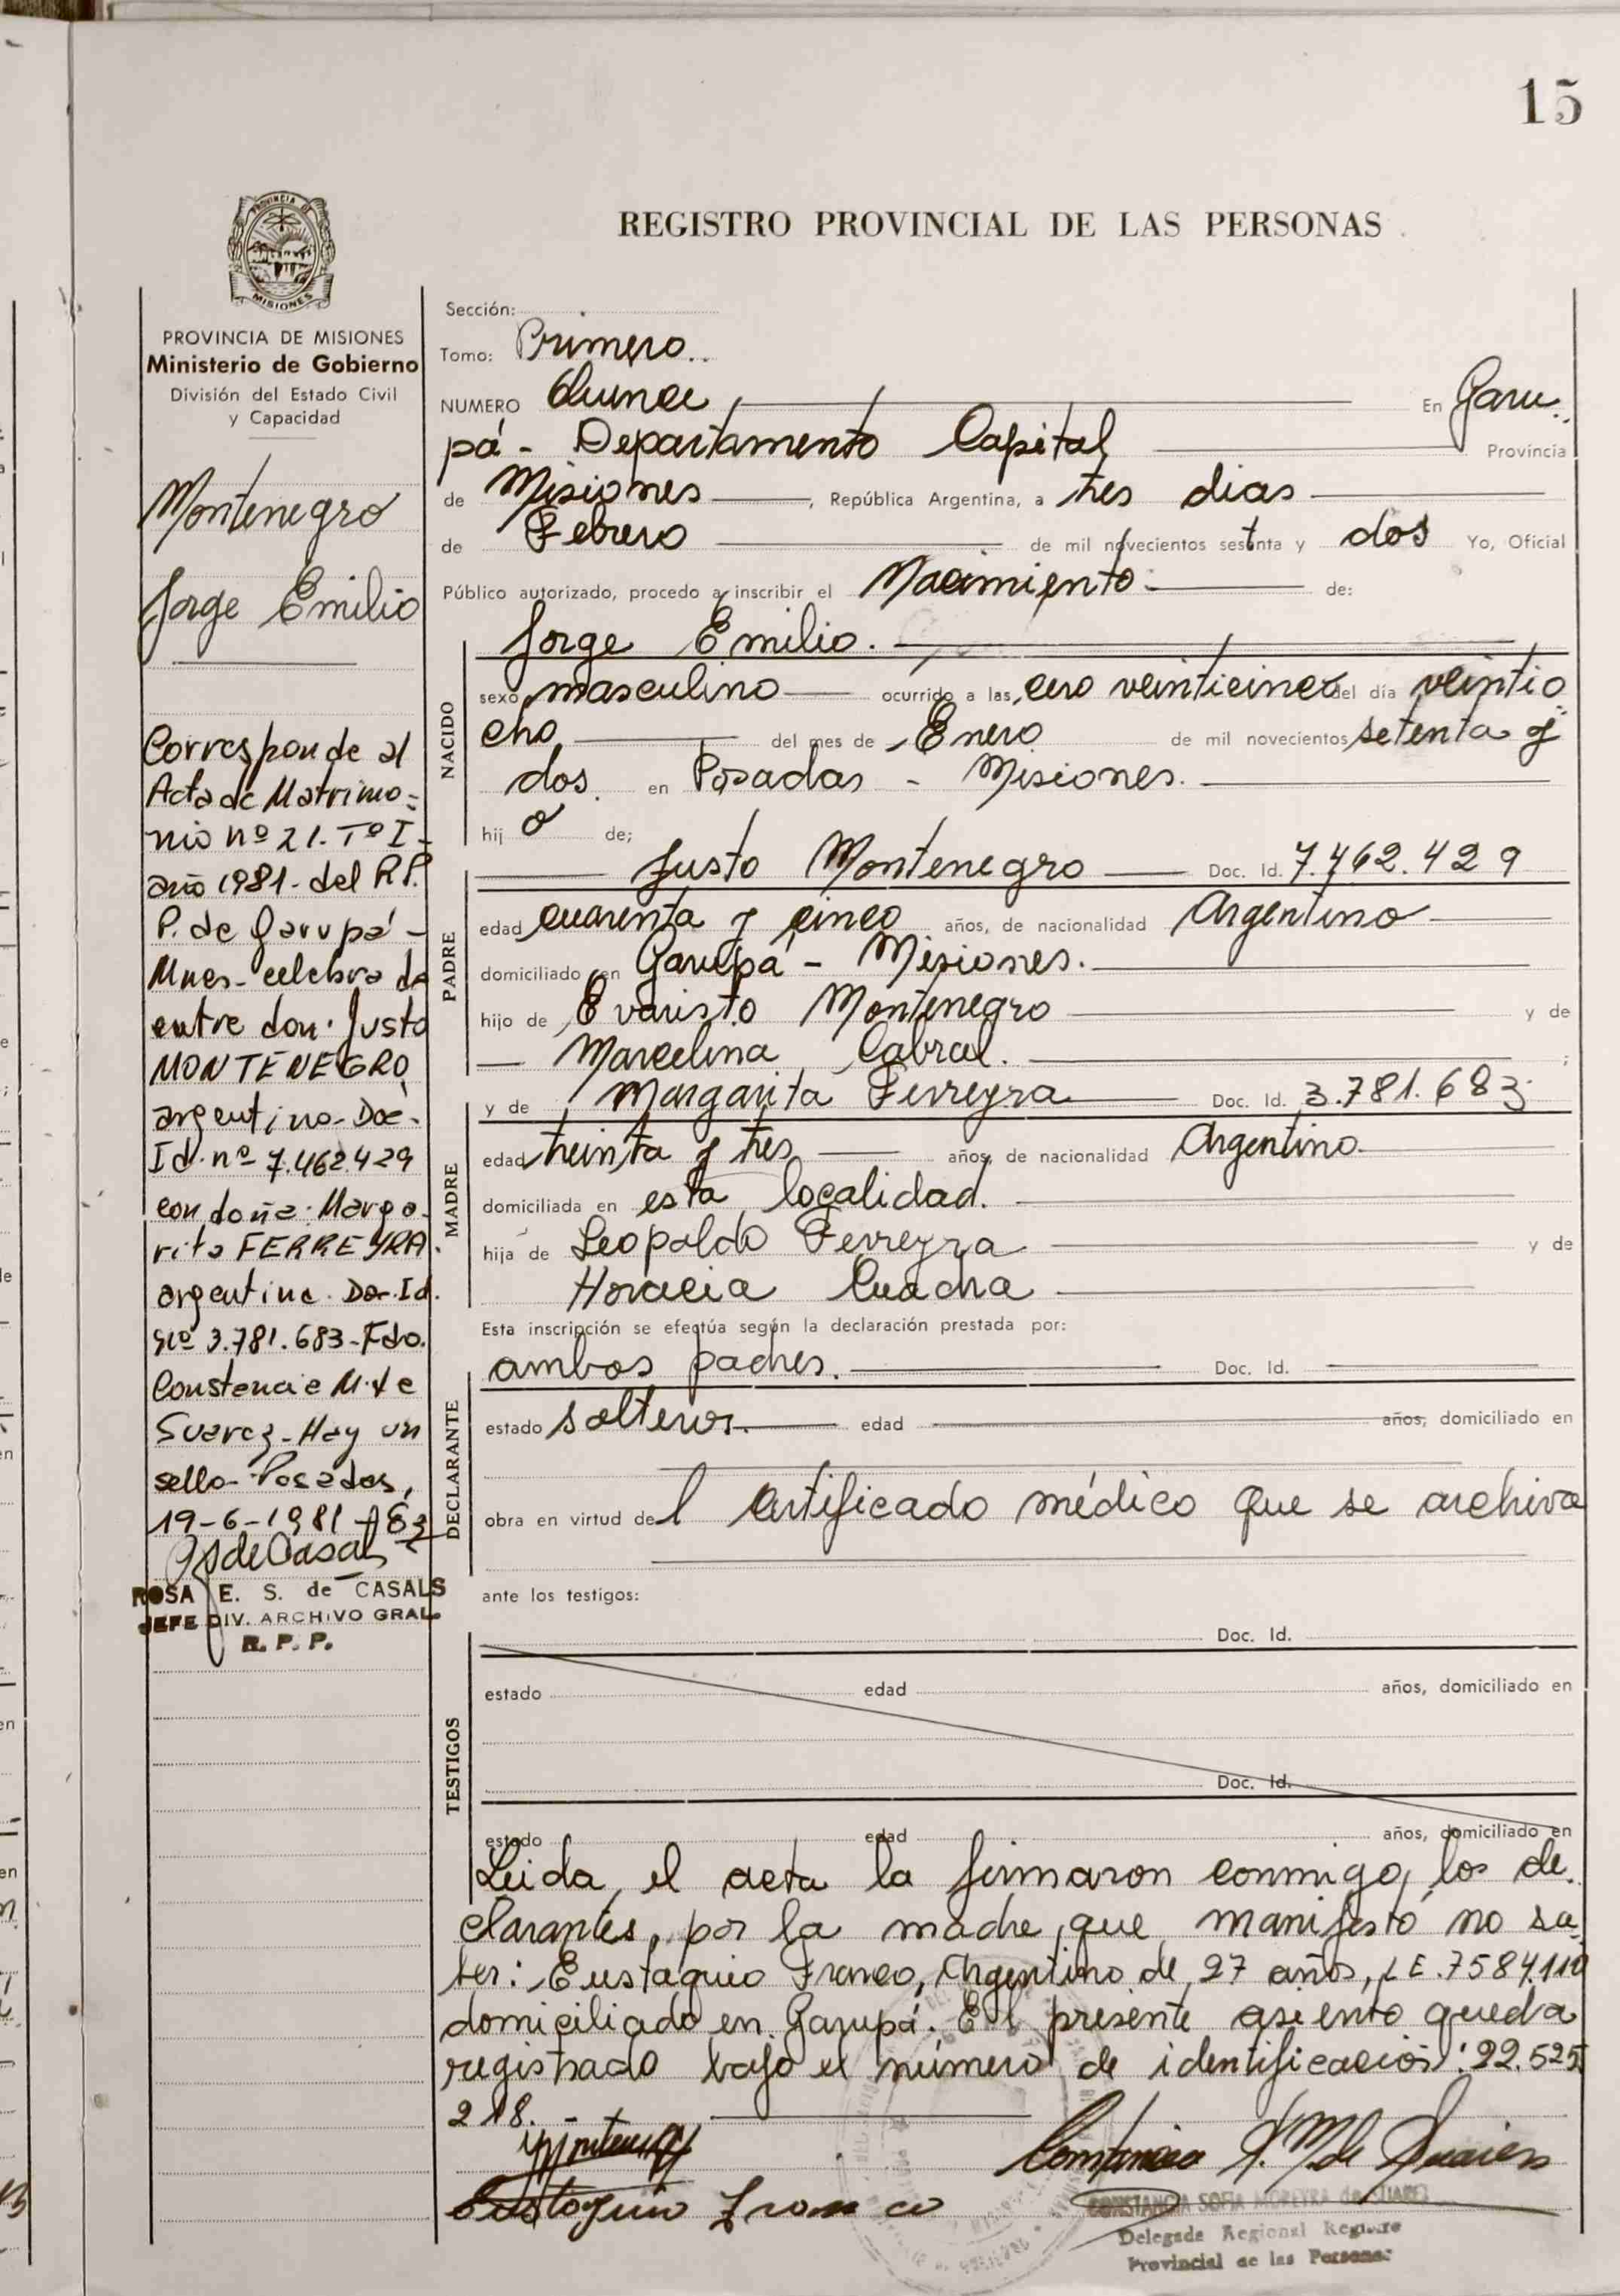 15
REGISTRO PROVINCIAL DE LAS PERSONAS
PROVINCIA DE
MISIONES
PROVINCIA DE MISIONES
Ministerio de Gobierno
División del Estado Civil
y Capacidad
Montenegro
Jorge Emilio
Corresponde al
Acta de Matrimo=
nio nº 21. Tº I-
año 1981- del R.P.
P. de Garupá-
Mnes- celebrada
entre don: Justo
MONTENEGRO,
argentino- Doc-
Id. nº 7.462.429
con doña: Marga-
rita FERREYRA.
argentina. Doc. Id.
Nº 3.781.683- Fdo.
Constancia M. de
Suarez- Hay un
sello- Posadas,
19-6-1981-
ROSA E. S. de CASALS
JEFE DIV. ARCHIVO GRAL.
R. P. P.
Sección:
Tomo: Primero..
NUMERO Quince En Garu-
pá - Departamento Capital Provincia
de Misiones, República Argentina, a tres dias
de Febrero de mil novecientos setenta y dos Yo, Oficial
Público autorizado, procedo a inscribir el Nacimiento de:
Jorge Emilio.
NACIDO
sexo masculino ocurrido a las, cero veinticinco del día veintio
cho del mes de Enero de mil novecientos setenta y
dos. en Posadas - Misiones.
hij o de;
Justo Montenegro Doc. Id. 7.462.429
PADRE
edad cuarenta y cinco años, de nacionalidad Argentino
domiciliado en Garupá - Misiones.
hijo de Evaristo Montenegro y de
Marcelina Cabral. ;
y de Margarita Ferreyra Doc. Id. 3.781.683
MADRE
edad treinta y tres años, de nacionalidad Argentina
domiciliada en esta localidad.
hija de Leopoldo Ferreyra y de
Horacia
Esta inscripción se efectúa según la declaración prestada por:
ambos padres. Doc. Id.
DECLARANTE
estado solteros. edad años, domiciliado en
obra en virtud del Certificado médico que se archiva
ante los testigos:
Doc. Id.
TESTIGOS
estado edad años, domiciliado en
Doc. Id.
estado edad años, domiciliado en
Leida el acta la firmaron conmigo, los de-
clarantes, por la madre, que manifestó no sa-
ber: Eustaquio Franco, Argentino de 27 años, L.E. 7584.110
domiciliado en Garupá. El presente asiento queda
registrado bajo el número de identificación: 22.525
218.
Eustaquio Franco
CONSTANCIA SOFIA MOREYRA de SUAREZ
Delegada Regional Registro
Provincial de las Personas